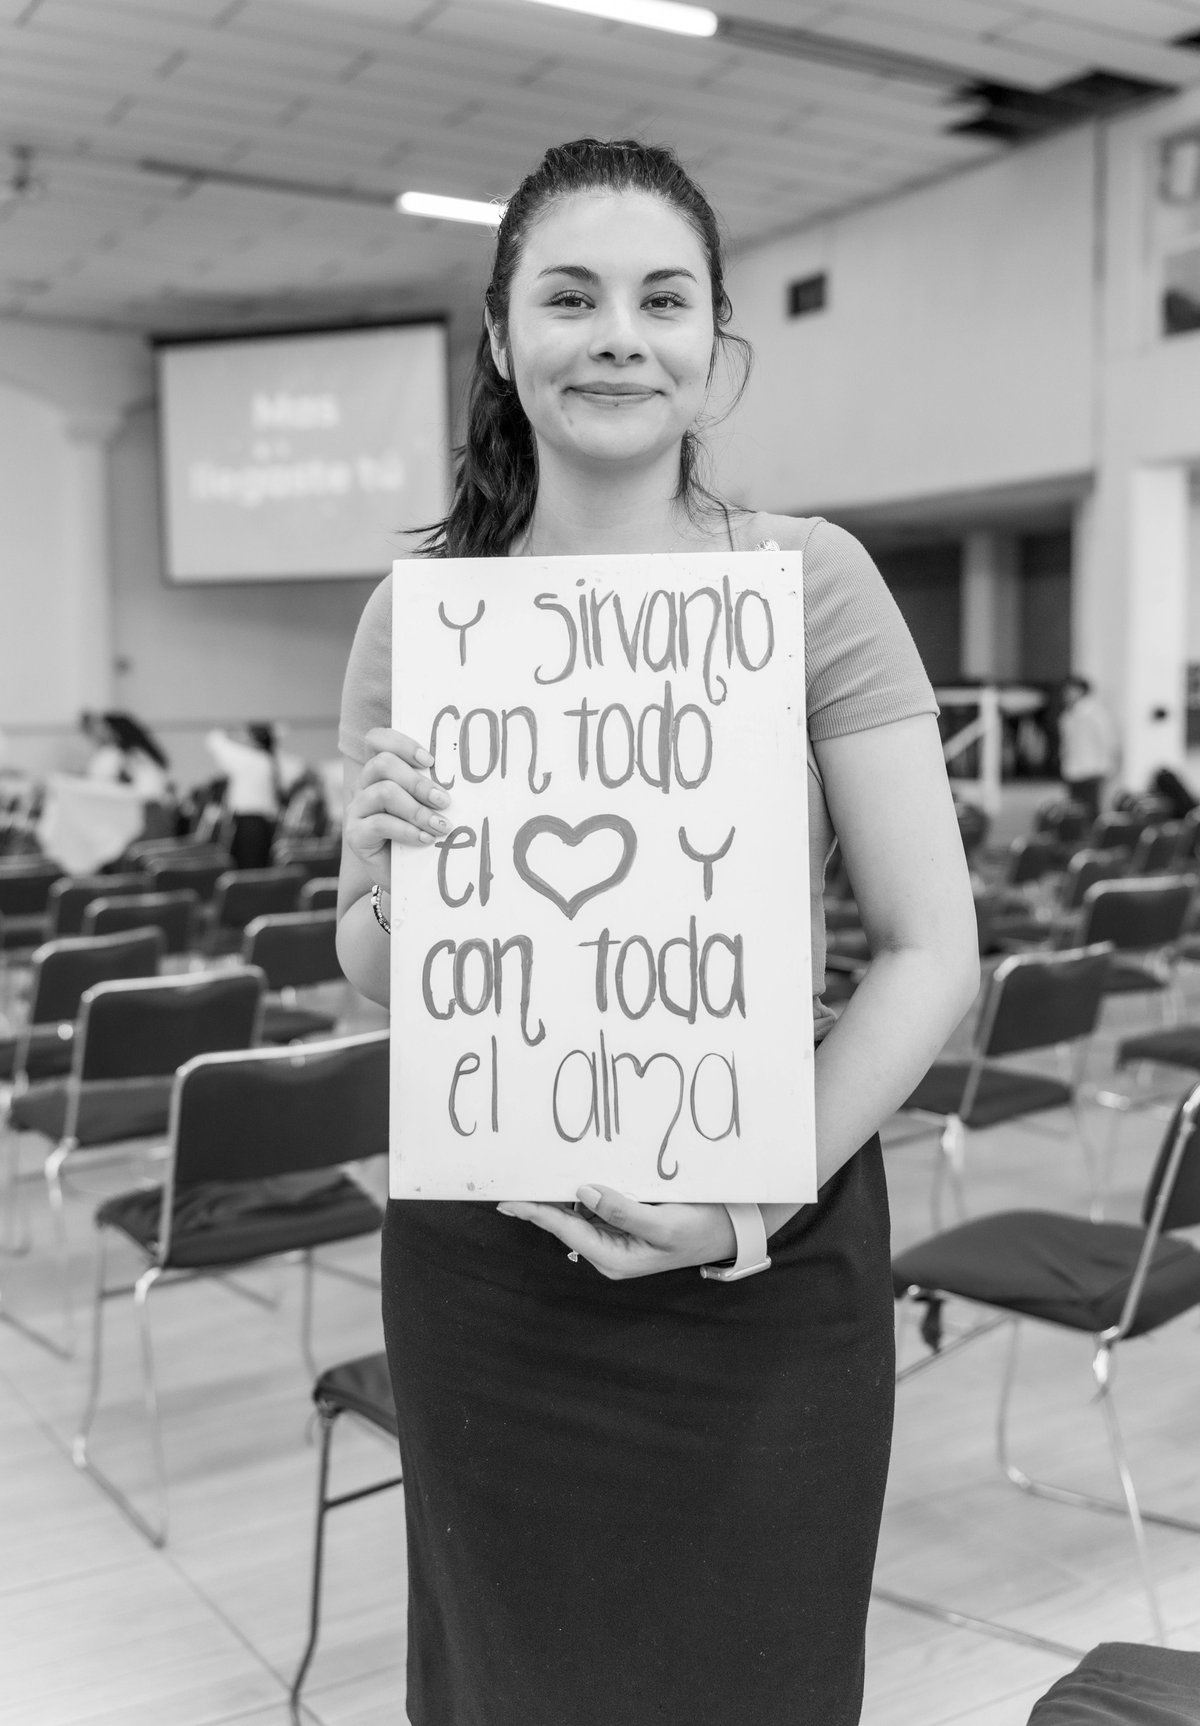 Mas
llegaste tú
Y sirvanlo
con todo
el ♡ Y
con toda
el alma